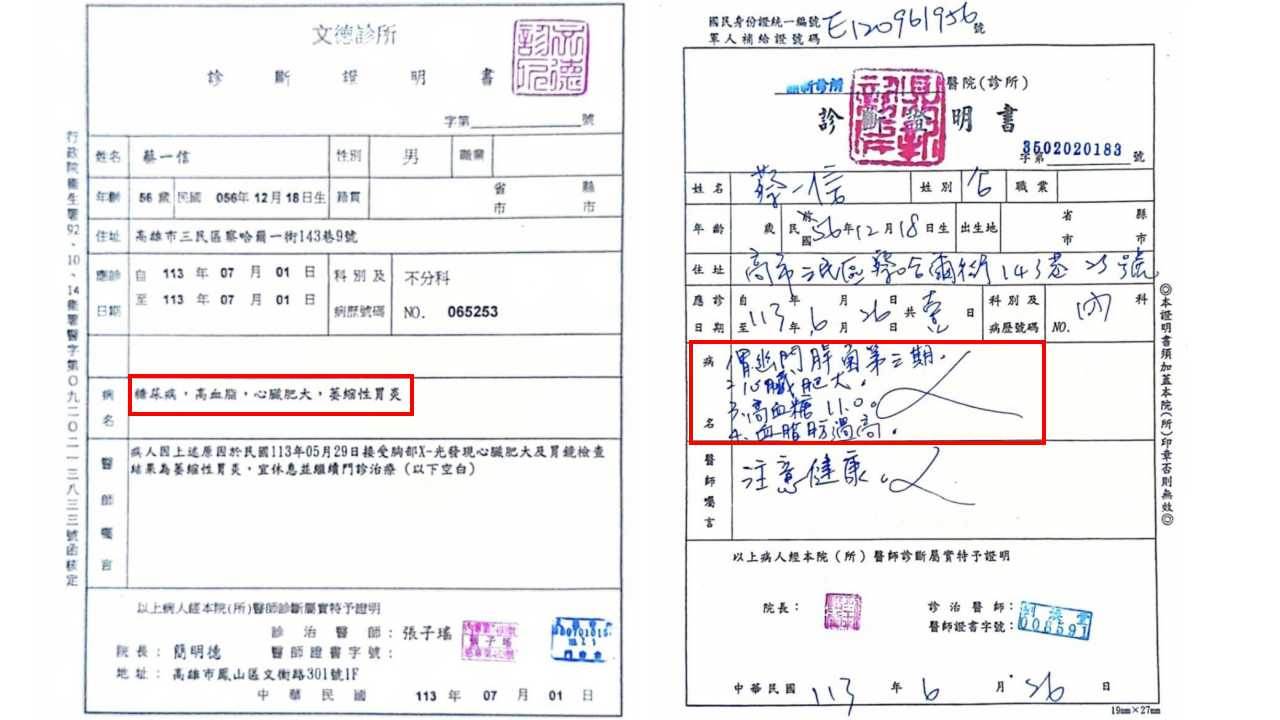 文德診所
診斷證明書
字第 號
姓名 蔡一信 性別 男 職業
年齡 56 歲 民國 056年12月18日生 籍貫 省 縣
市 市
住址 高雄市三民區察哈爾一街143巷9號
應診 自 113 年 07 月 01 日 科別及 不分科
日期 至 113 年 07 月 01 日 病歷號碼 NO. 065253
病名 糖尿病，高血脂，心臟肥大，萎縮性胃炎
醫師囑言 病人因上述原因於民國113年05月29日接受胸部X-光發現心臟肥大及胃鏡檢查
結果為萎縮性胃炎，宜休息並繼續門診治療（以下空白）
以上病人經本院(所)醫師診斷屬實特予證明
診治醫師：張子瑤
院長：簡明德 醫師證書字號：
地址：高雄市鳳山區文衡路301號1F
中華民國 113 年 07 月 01 日
行政院衛生署92．10．14衛署醫字第０九二０二一三八三三號函核定
國民身份證統一編號 E120961956 號
軍人補給證號碼
醫院(診所)
診斷證明書
字第 3502020183 號
姓名 蔡一信 性別 職業
年齡 歲 民國 56年12月18日生 出生地 省 縣
市 市
住址 高市三民區察哈爾街143巷25號
應診 自 年 月 日 科別及 內 科
日期 至113年6月26日 共壹 病歷號碼 NO.
病名 胃幽門桿菌第三期。
2.心臟肥大。
3.高血糖 11.0。
4.血脂肪過高。
醫師囑言 注意健康。
以上病人經本院（所）醫師診斷屬實特予證明
院長： 診治醫師：
醫師證書字號： 006591
中華民國 113 年 6 月 26 日
19mm×27mm
◎本證明書須加蓋本院(所)印章否則無效◎